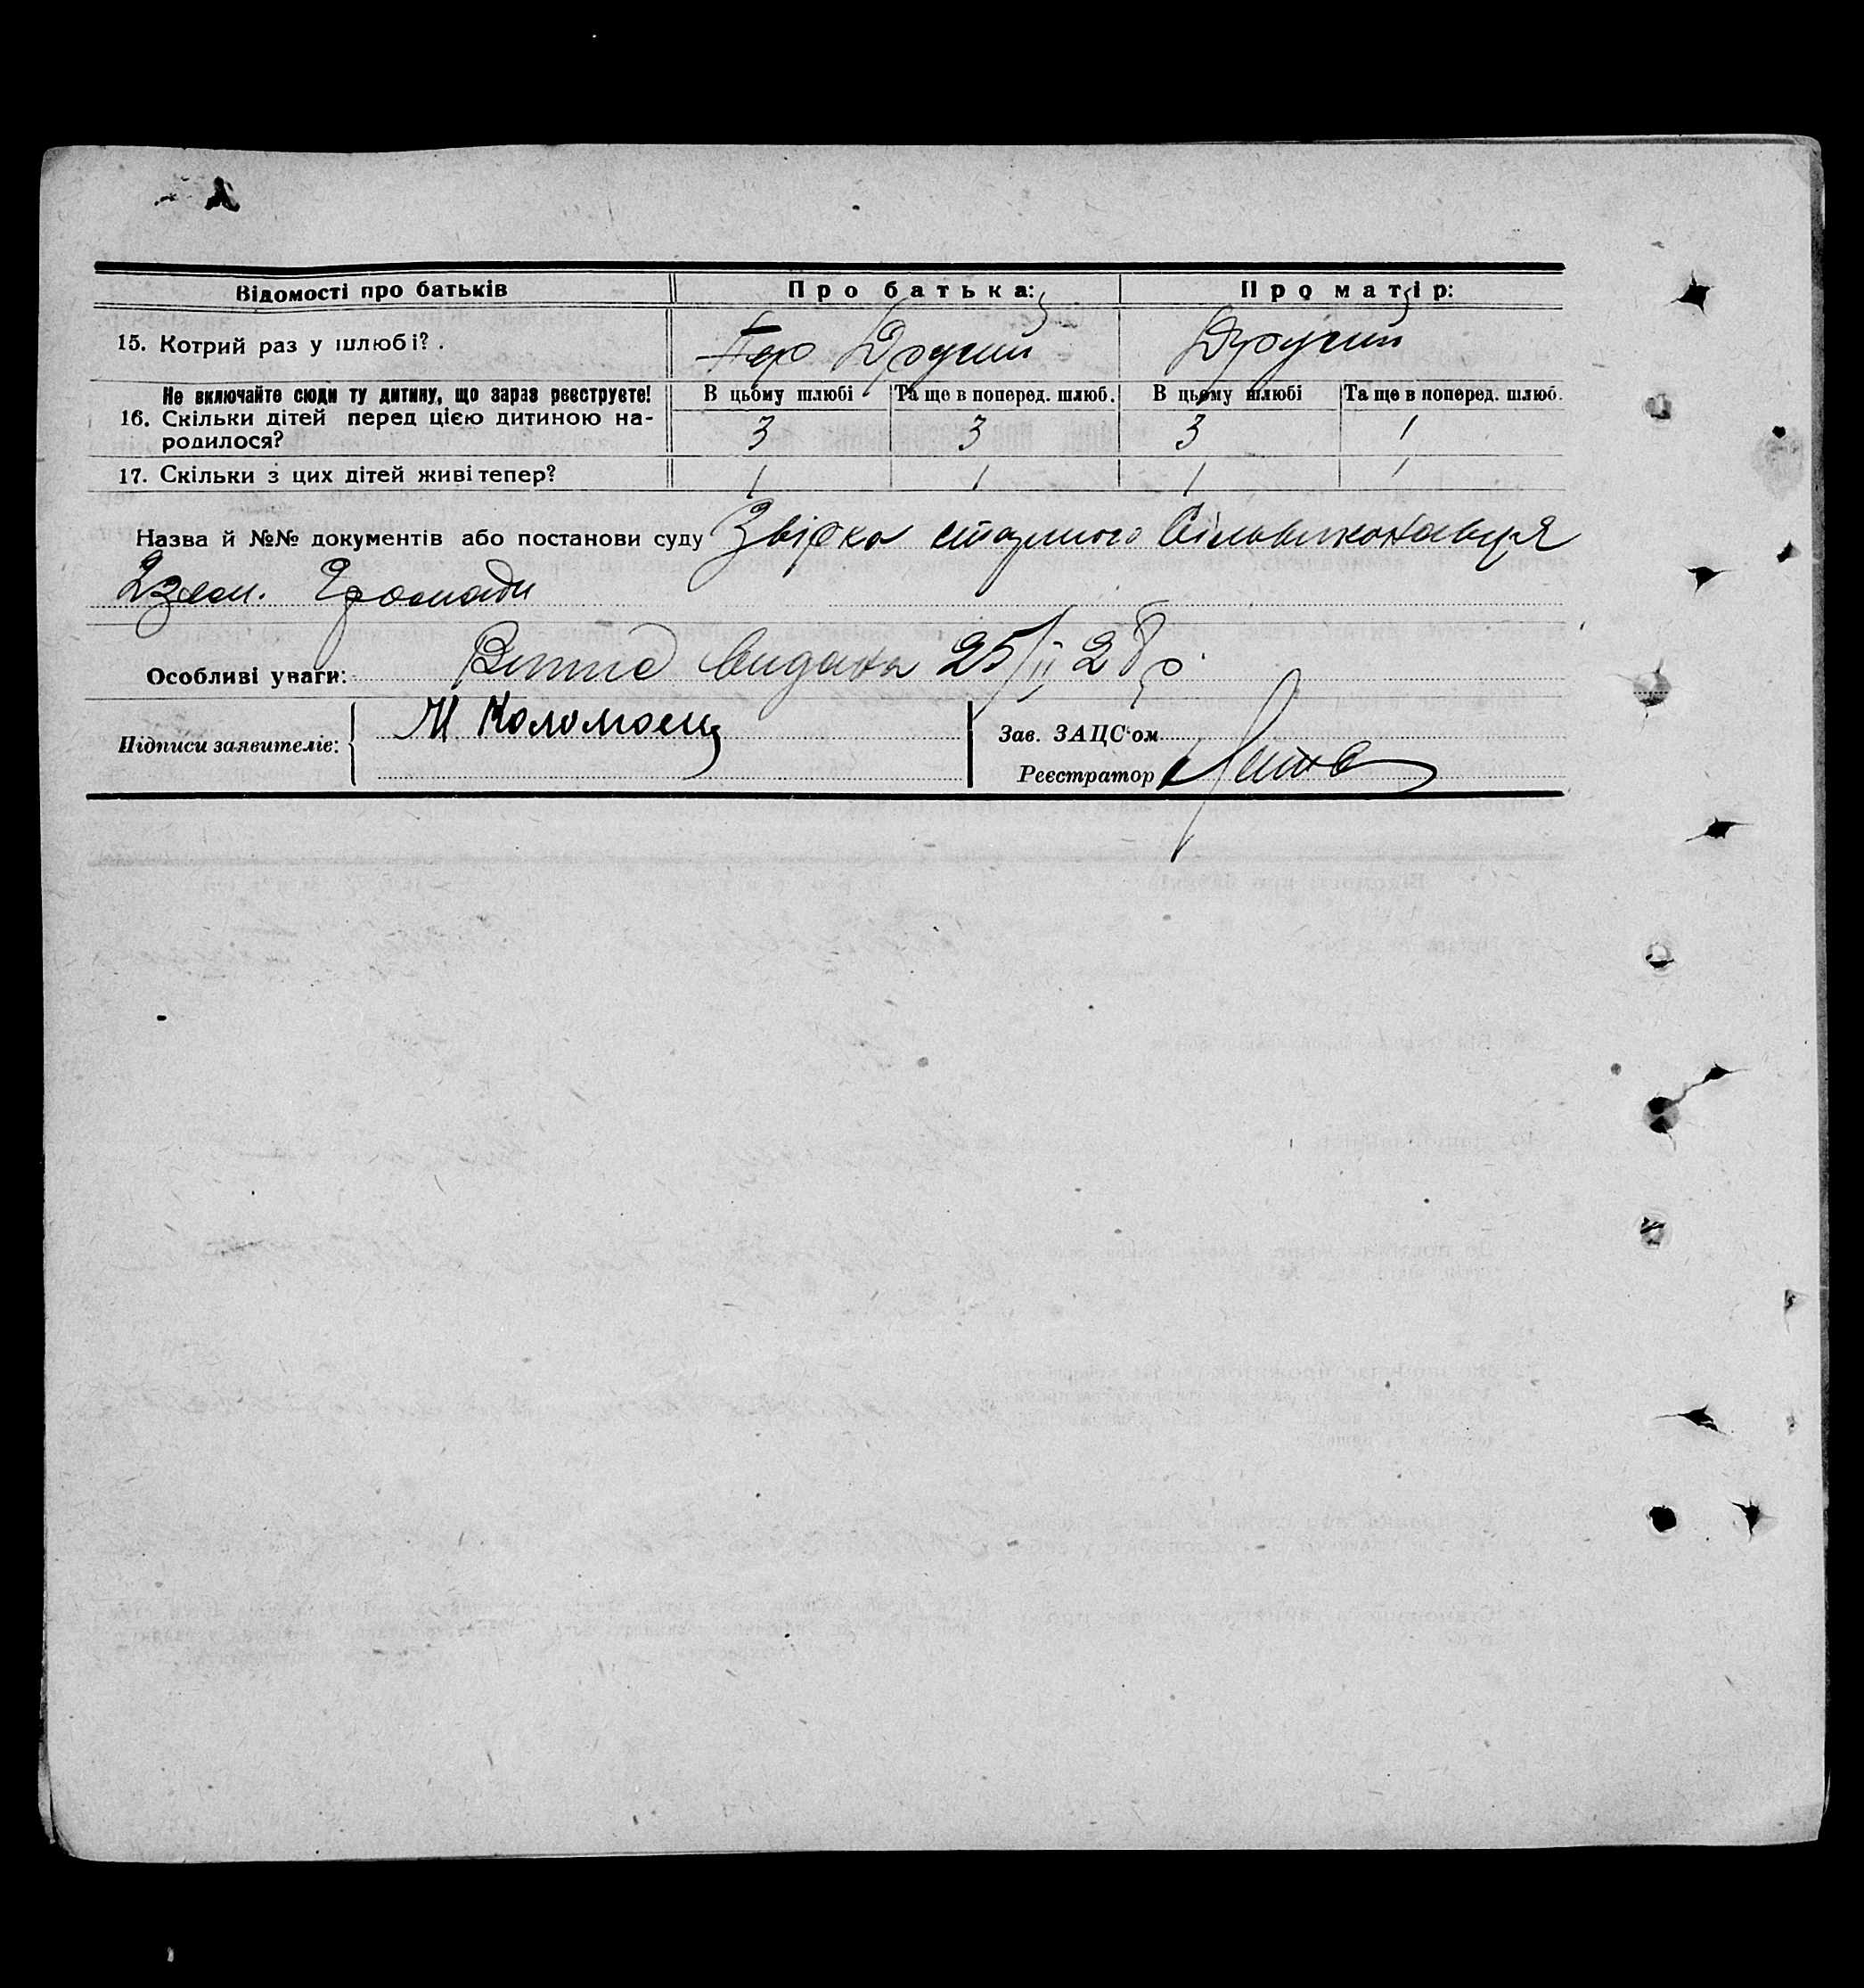 Відомості про батьків Про батька: Про матір:
15. Котрий раз у шлюбі? . Пер Другий Другий
Не включайте сюди ту дитину, що зараз реєструєте! В цьому шлюбі Та ще в поперед. шлюб. В цьому шлюбі Та ще в поперед. шлюб.
16. Скільки дітей перед цією дитиною на- 3 3 3 1
родилося?
17. Скільки з цих дітей живі тепер? 1 1 1 1
Назва й №№ документів або постанови суду Звірка сільвиконавця
2 зем. Громади
Особливі уваги: видана 25/II 28 р.
Підписи заявителів: М Коломоец Зав. ЗАЦС'ом
Реєстратор